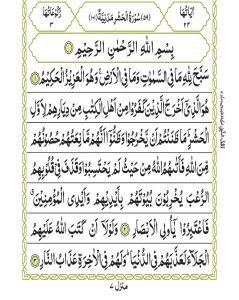 اٰیَاتُهَا ٢٤
(٥٩) سُوْرَةُ الْحَشْرِ مَدَنِيَّةٌ (١٠١)
رُكُوْعَاتُهَا ٣
بِسْمِ اللهِ الرَّحْمٰنِ الرَّحِيْمِ
سَبَّحَ لِلّٰهِ مَا فِي السَّمٰوٰتِ وَمَا فِي الْاَرْضِ ۚ وَهُوَ الْعَزِيْزُ الْحَكِيْمُ
هُوَ الَّذِيْۤ اَخْرَجَ الَّذِيْنَ كَفَرُوْا مِنْ اَهْلِ الْكِتٰبِ مِنْ دِيَارِهِمْ لِاَوَّلِ
الْحَشْرِ ؔ مَا ظَنَنْتُمْ اَنْ يَّخْرُجُوْا وَظَنُّوْۤا اَنَّهُمْ مَّانِعَتُهُمْ حُصُوْنُهُمْ
مِّنَ اللهِ فَاَتٰىهُمُ اللهُ مِنْ حَيْثُ لَمْ يَحْتَسِبُوْا وَقَذَفَ فِيْ قُلُوْبِهِمُ
الرُّعْبَ يُخْرِبُوْنَ بُيُوْتَهُمْ بِاَيْدِيْهِمْ وَاَيْدِي الْمُؤْمِنِيْنَ ۗ
فَاعْتَبِرُوْا يٰۤاُولِي الْاَبْصَارِ وَلَوْلَاۤ اَنْ كَتَبَ اللهُ عَلَيْهِمُ
الْجَلَآءَ لَعَذَّبَهُمْ فِي الدُّنْيَا ؕ وَلَهُمْ فِي الْاٰخِرَةِ عَذَابُ النَّارِ
منزل ٧